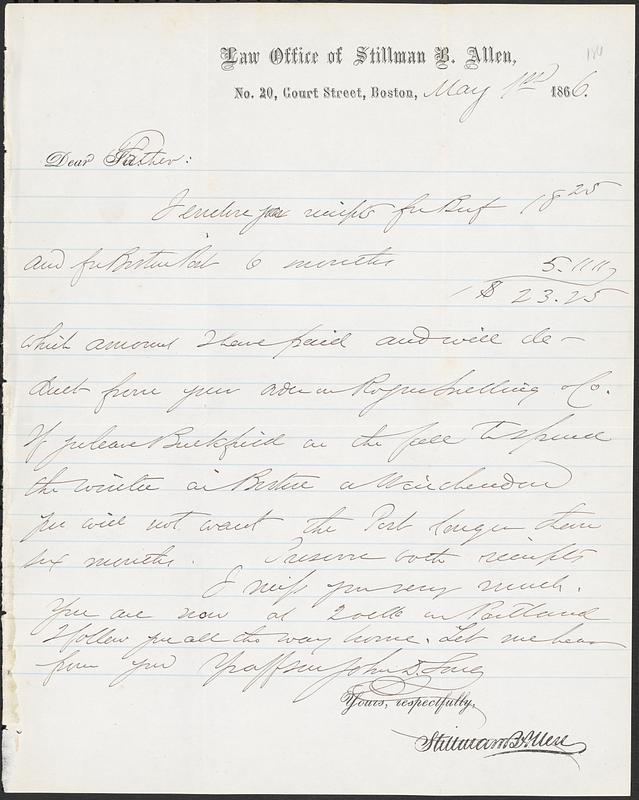 Law Office of Stillman B. Allen,
No. 20, Court Street, Boston, May 1st 1866.
Dear Father:
I enclose you receipts for Beef 18 25
and for Boston Post 6 months 5.
$ 23.25
which amount I have paid and will de-
duct from your order on Snelling & Co.
If you leave Buckfield in the fall to spend
the winter in Boston or Winchendon
you will not want the Post longer than
six months. Preserve both receipts
I miss you very much.
You are now at 2 oclk in Portland
I follow you all the way home. Let me hear
from you Yr aff son John D. Long
Yours, respectfully,
Stillman B. Allen